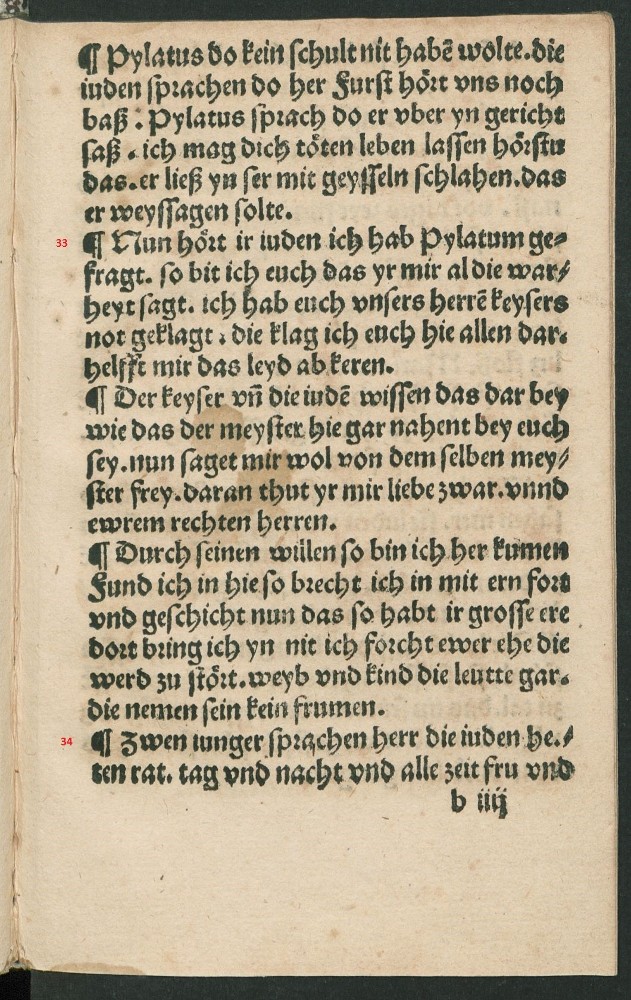 ¶ Pylatus do kein schult nit habē wolte.die
iuden sprachen do her Furst hört vns noch
baß : Pylatus sprach do er vber yn gericht
saß . ich mag dich töten leben lassen hörstu
das.er ließ yn ser mit geysseln schlahen.das
er weyssagen solte.
33 ¶ Nun hört ir iuden ich hab Pylatum ge⸗
fragt. so bit ich euch das yr mir al die war⸗
heyt sagt. ich hab euch vnsers herrē keysers
not geklagt . die klag ich euch hie allen dar.
helfft mir das leyd ab keren.
¶ Der keyser vñ die iudē wissen das dar bey
wie das der meyster hie gar nahent bey euch
sey.nun saget mir wol von dem selben mey⸗
ster frey.daran thut yr mir liebe zwar.vnnd
ewrem rechten herren.
¶ Durch seinen willen so bin ich her kumen
Fund ich in hie so brecht ich in mit ern fort
vnd geschicht nun das so habt ir grosse ere
dort bring ich yn nit ich forcht ewer ehe die
werd zu stört.weyb vnd kind die leutte gar.
die nemen sein kein frumen.
34 ¶ Zwen iunger sprachen herr die iuden he.⸗
ten rat. tag vnd nacht vnd alle zeit fru vnd
b iiij